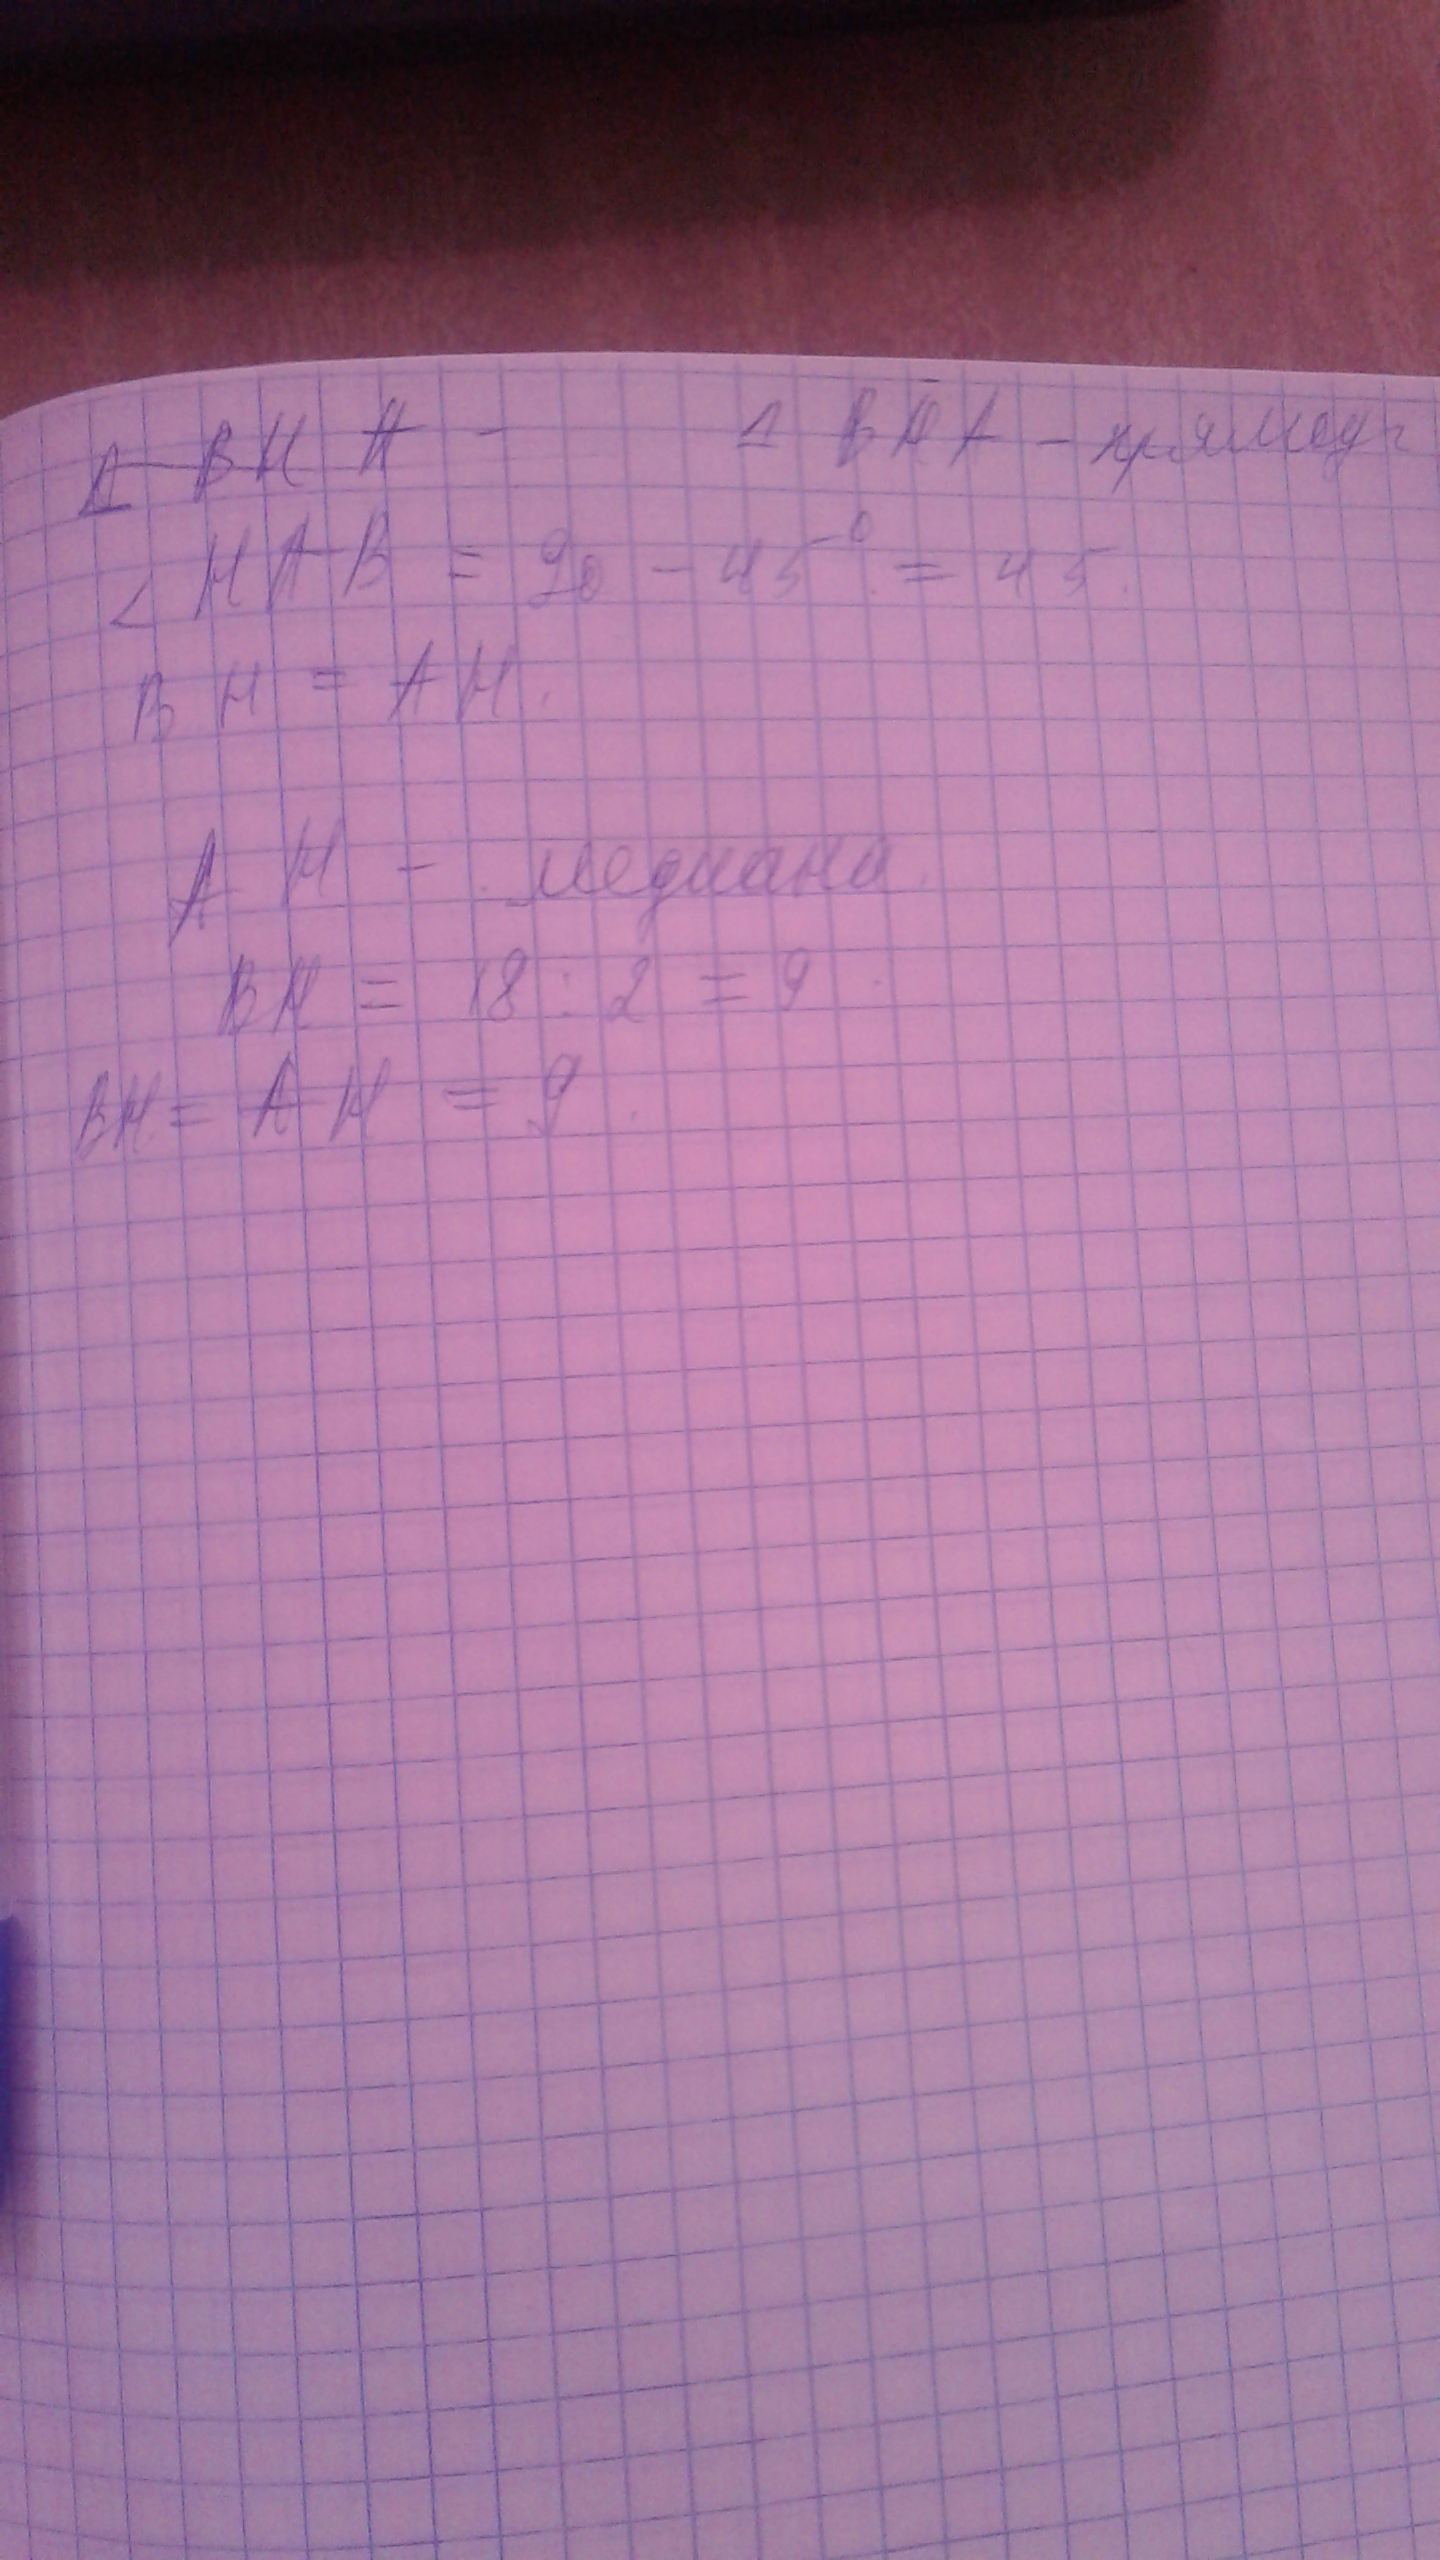 Δ BHA - Δ BHA - прямоуг
∠ HAB = 90 - 45° = 45.
BH = AH.
AH - медиана.
BH = 18 : 2 = 9.
BH = AH = 9.